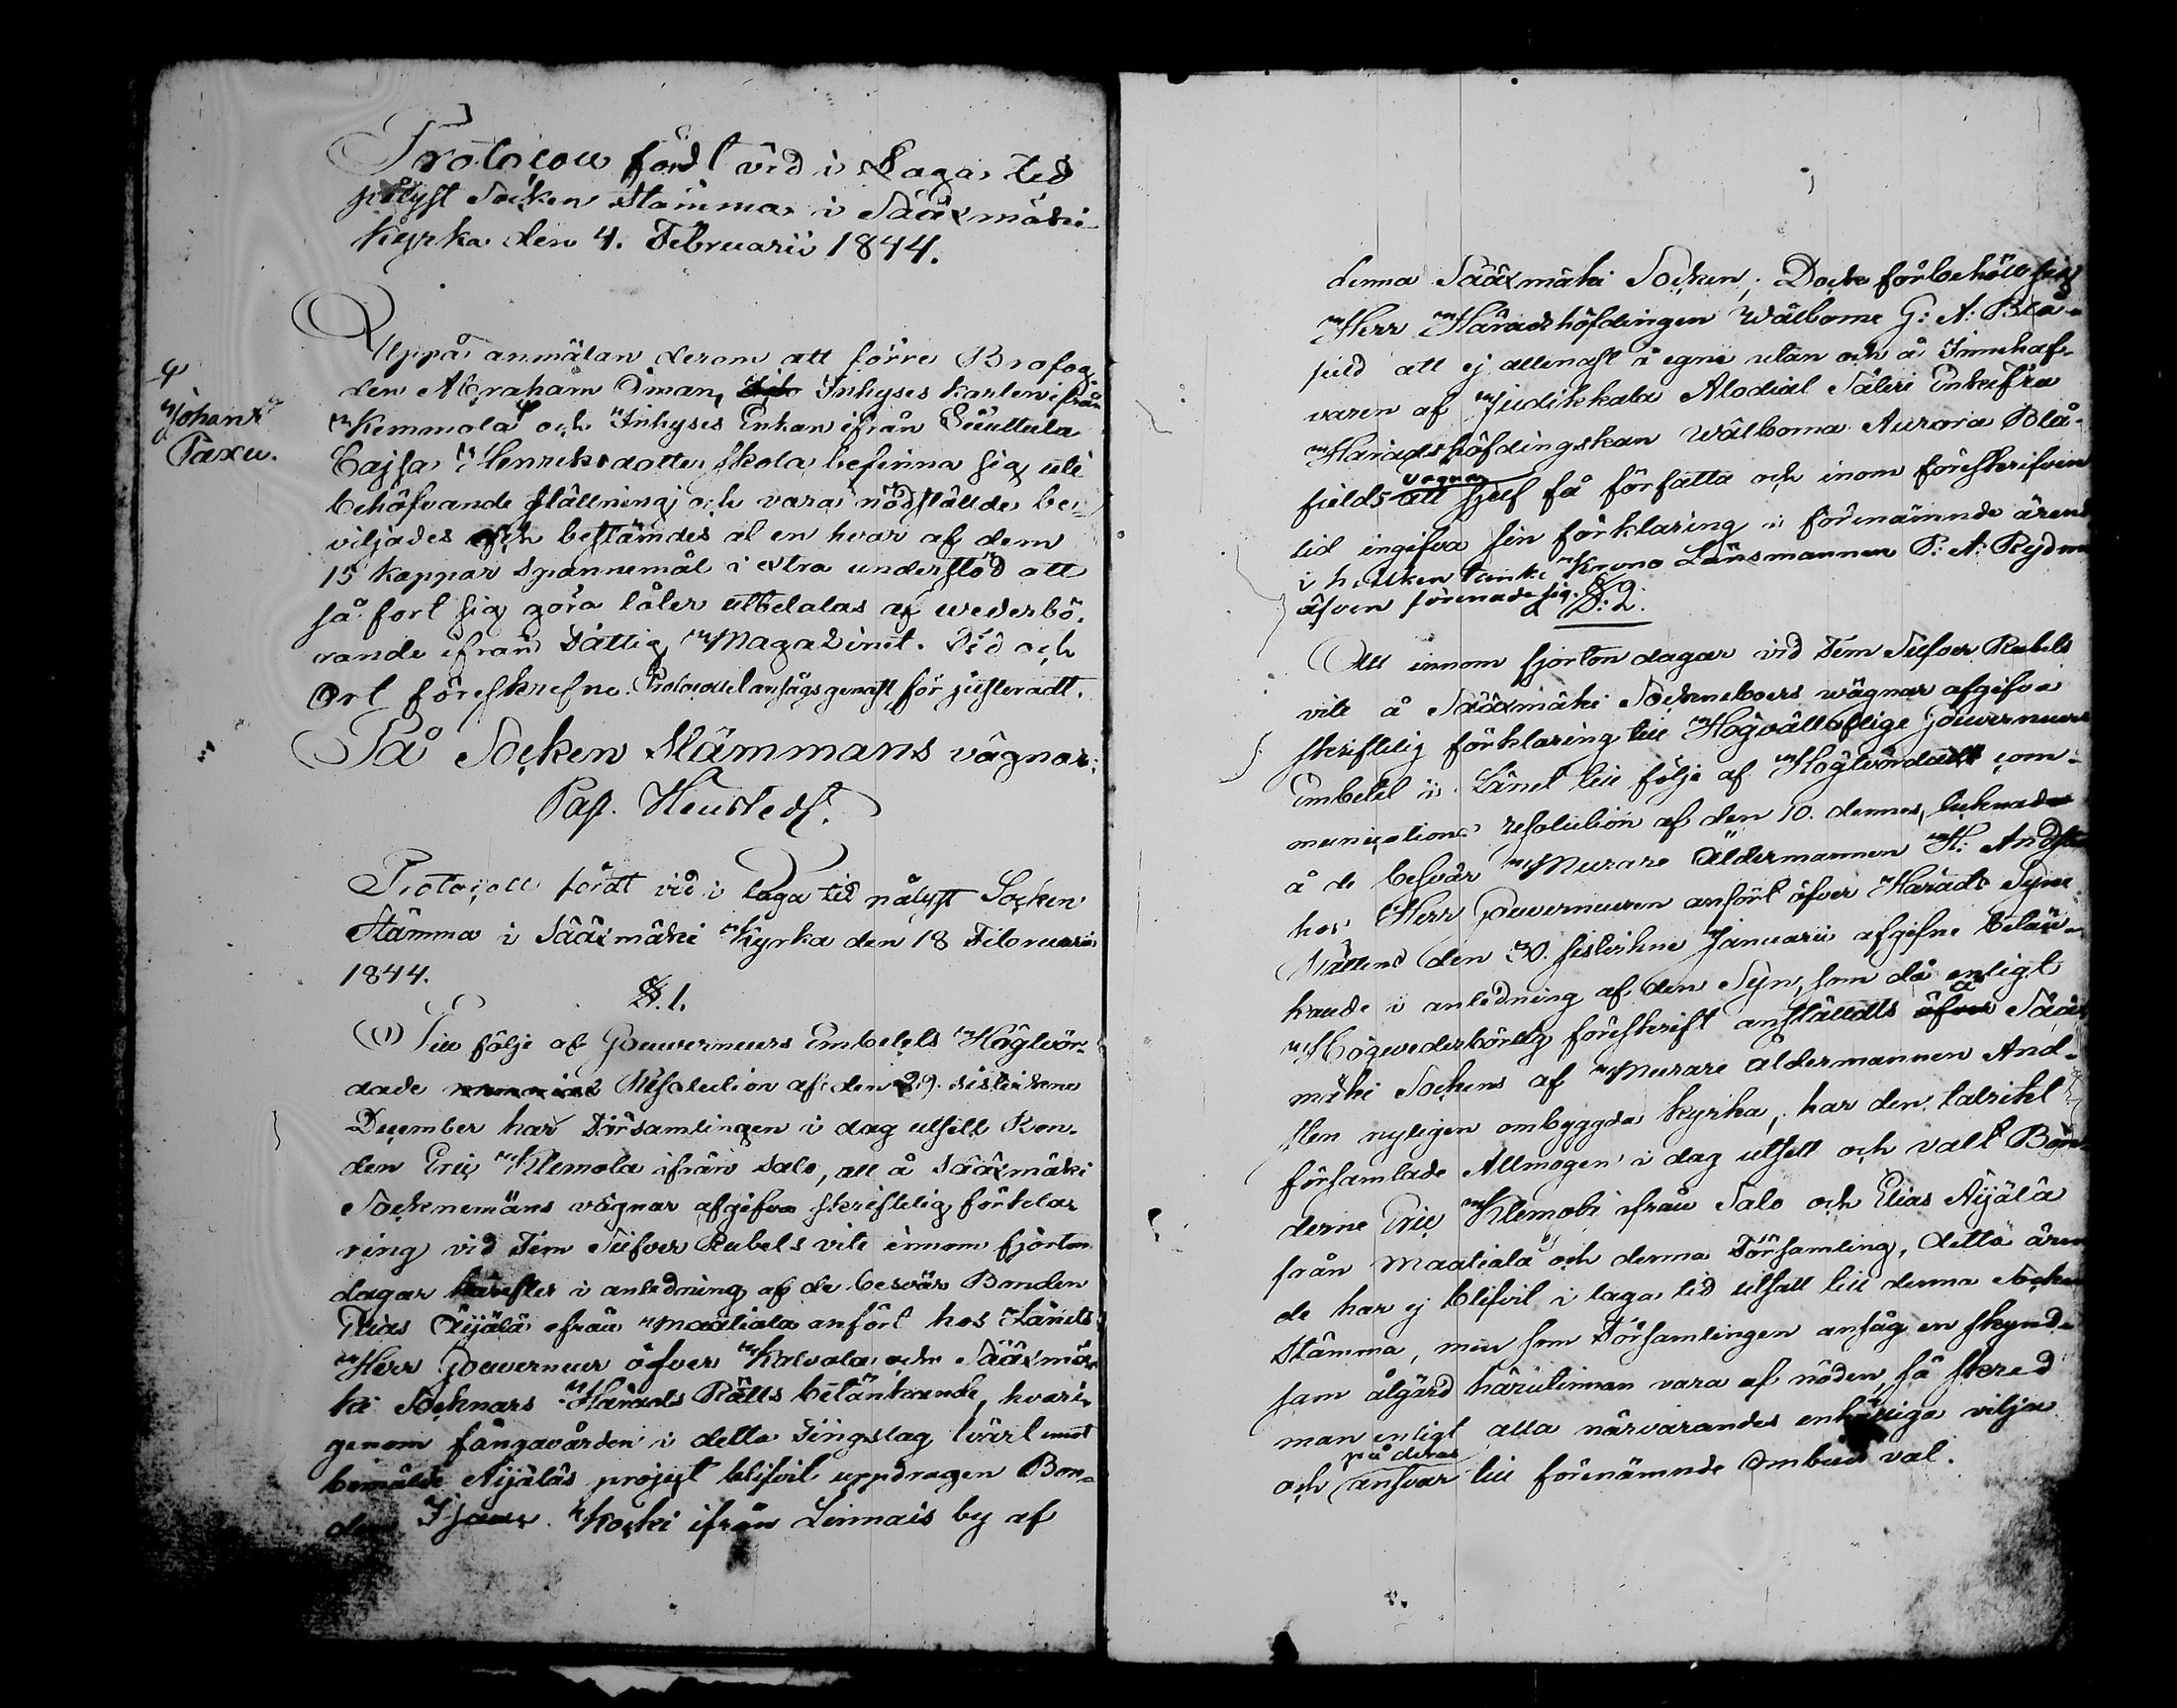 Protocoll fördt vid i Laga tid
pålyst Socken Stämma i Sääxmäki
Kyrka den 4. Februarii 1844.
Uppå anmälan derom att förre Brofog
den Abraham Öman, Inhyses karlen ifrån
Kemmola och Inhyses Enkan ifrån
Johan
Paxu.
Cajsa Henriksdotter skola befinna sig uti
behöfvande ställning och vara nödställde be-
viljades och bestämdes at en hvar af dem
15 kappar Spannemål i extra understöd att
så fort sig göra låter utbetalas af wederbö-
rande ifrån Fattig Magazinet. Tid och
Ort föreskrefne. Protocollet ansågs genast för justeradt.
På Socken Stämmans vägnar:
Past. Heurlech.
Protocoll fördt vid i laga tid pålyst Socken
Stämma i Sääxmäki Kyrka den 18 Februarii
1844.
§. 1.
Till följe af Gouverneurs Embetets Högtvör-
dade Resolution af den 29. sistledne
December har Församlingen i dag utsett Bon-
den Eric Klemola ifrån Salo, att å Sääxmäki
Socknemäns vägnar afgifva skriftelig förkla-
ring vid Fem Silfver Rubels vite innom fjorton
dagar härefter i anledning af de besvär Bonden
Elias Äijälä ifrån Maatiala anfört hos Länets
Herr Gouverneur öfver Kalvola och Sääxmä-
ki Socknars Härads Rätts betänkande, hvari-
genom fångavården i detta Tingslag tvärt emot
bemälde Äijäläs project blifvit uppdragen Bon-
den Koski ifrån Linnais by af
denna Sääxmäki Socken; Dock förbehöll sig
Herr Häradshöfdingen Wälborne G: A: Blå-
field att ej allenast å egne utan och å Innehaf-
varen af Judikkala Alodial Säteri Enkefru
Häradshöfdingskan Wälborna Aurora Blå-
fields vägnar sjelf få författa och inom föreskrifven
tid ingifva sin förklaring i förenämnde ärend
i hvilken tanke Krono Länsmannen P: A: Rydm
äfven förenade sig.
§: 2.
Att innom fjorton dagar vid Fem Silfver Rubels
vite å Sääxmäki Sockneboers wägnar afgifva
skriftelig förklaring till Högvälloflige Gouverneurs
Embetet i Länet till följe af Högtvördadt com-
munications resolution af den 10. dennes, tecknade
å de besvär Murare Åldermannen H: Andsten
hos Herr Gouverneuren anfört öfver Härads Syne
Rättens den 30. sistledne Januarii afgifne betän-
kande i anledning af den Syn, som då enligt
Högvederbörlig föreskrift anställdts å Sääx
mäki Sockens af Murare Åldermannen And-
sten nyligen ombyggda kyrka, har den talrikt
församlade Allmogen i dag utsett och valt Bön
derne Eric Klemola ifrån Salo och Elias Äijälä
från Maatiala by och denna Församling, detta ären
de har ej blifvit i laga tid utsatt till denna Socken
Stämma, men som Församlingen ansåg en skynd-
sam åtgärd härutinnan vara af nöden, så skred
man enligt alla närvarandes enhälliga vilja
och på deras ansvar till förenämnde Ombuds val.